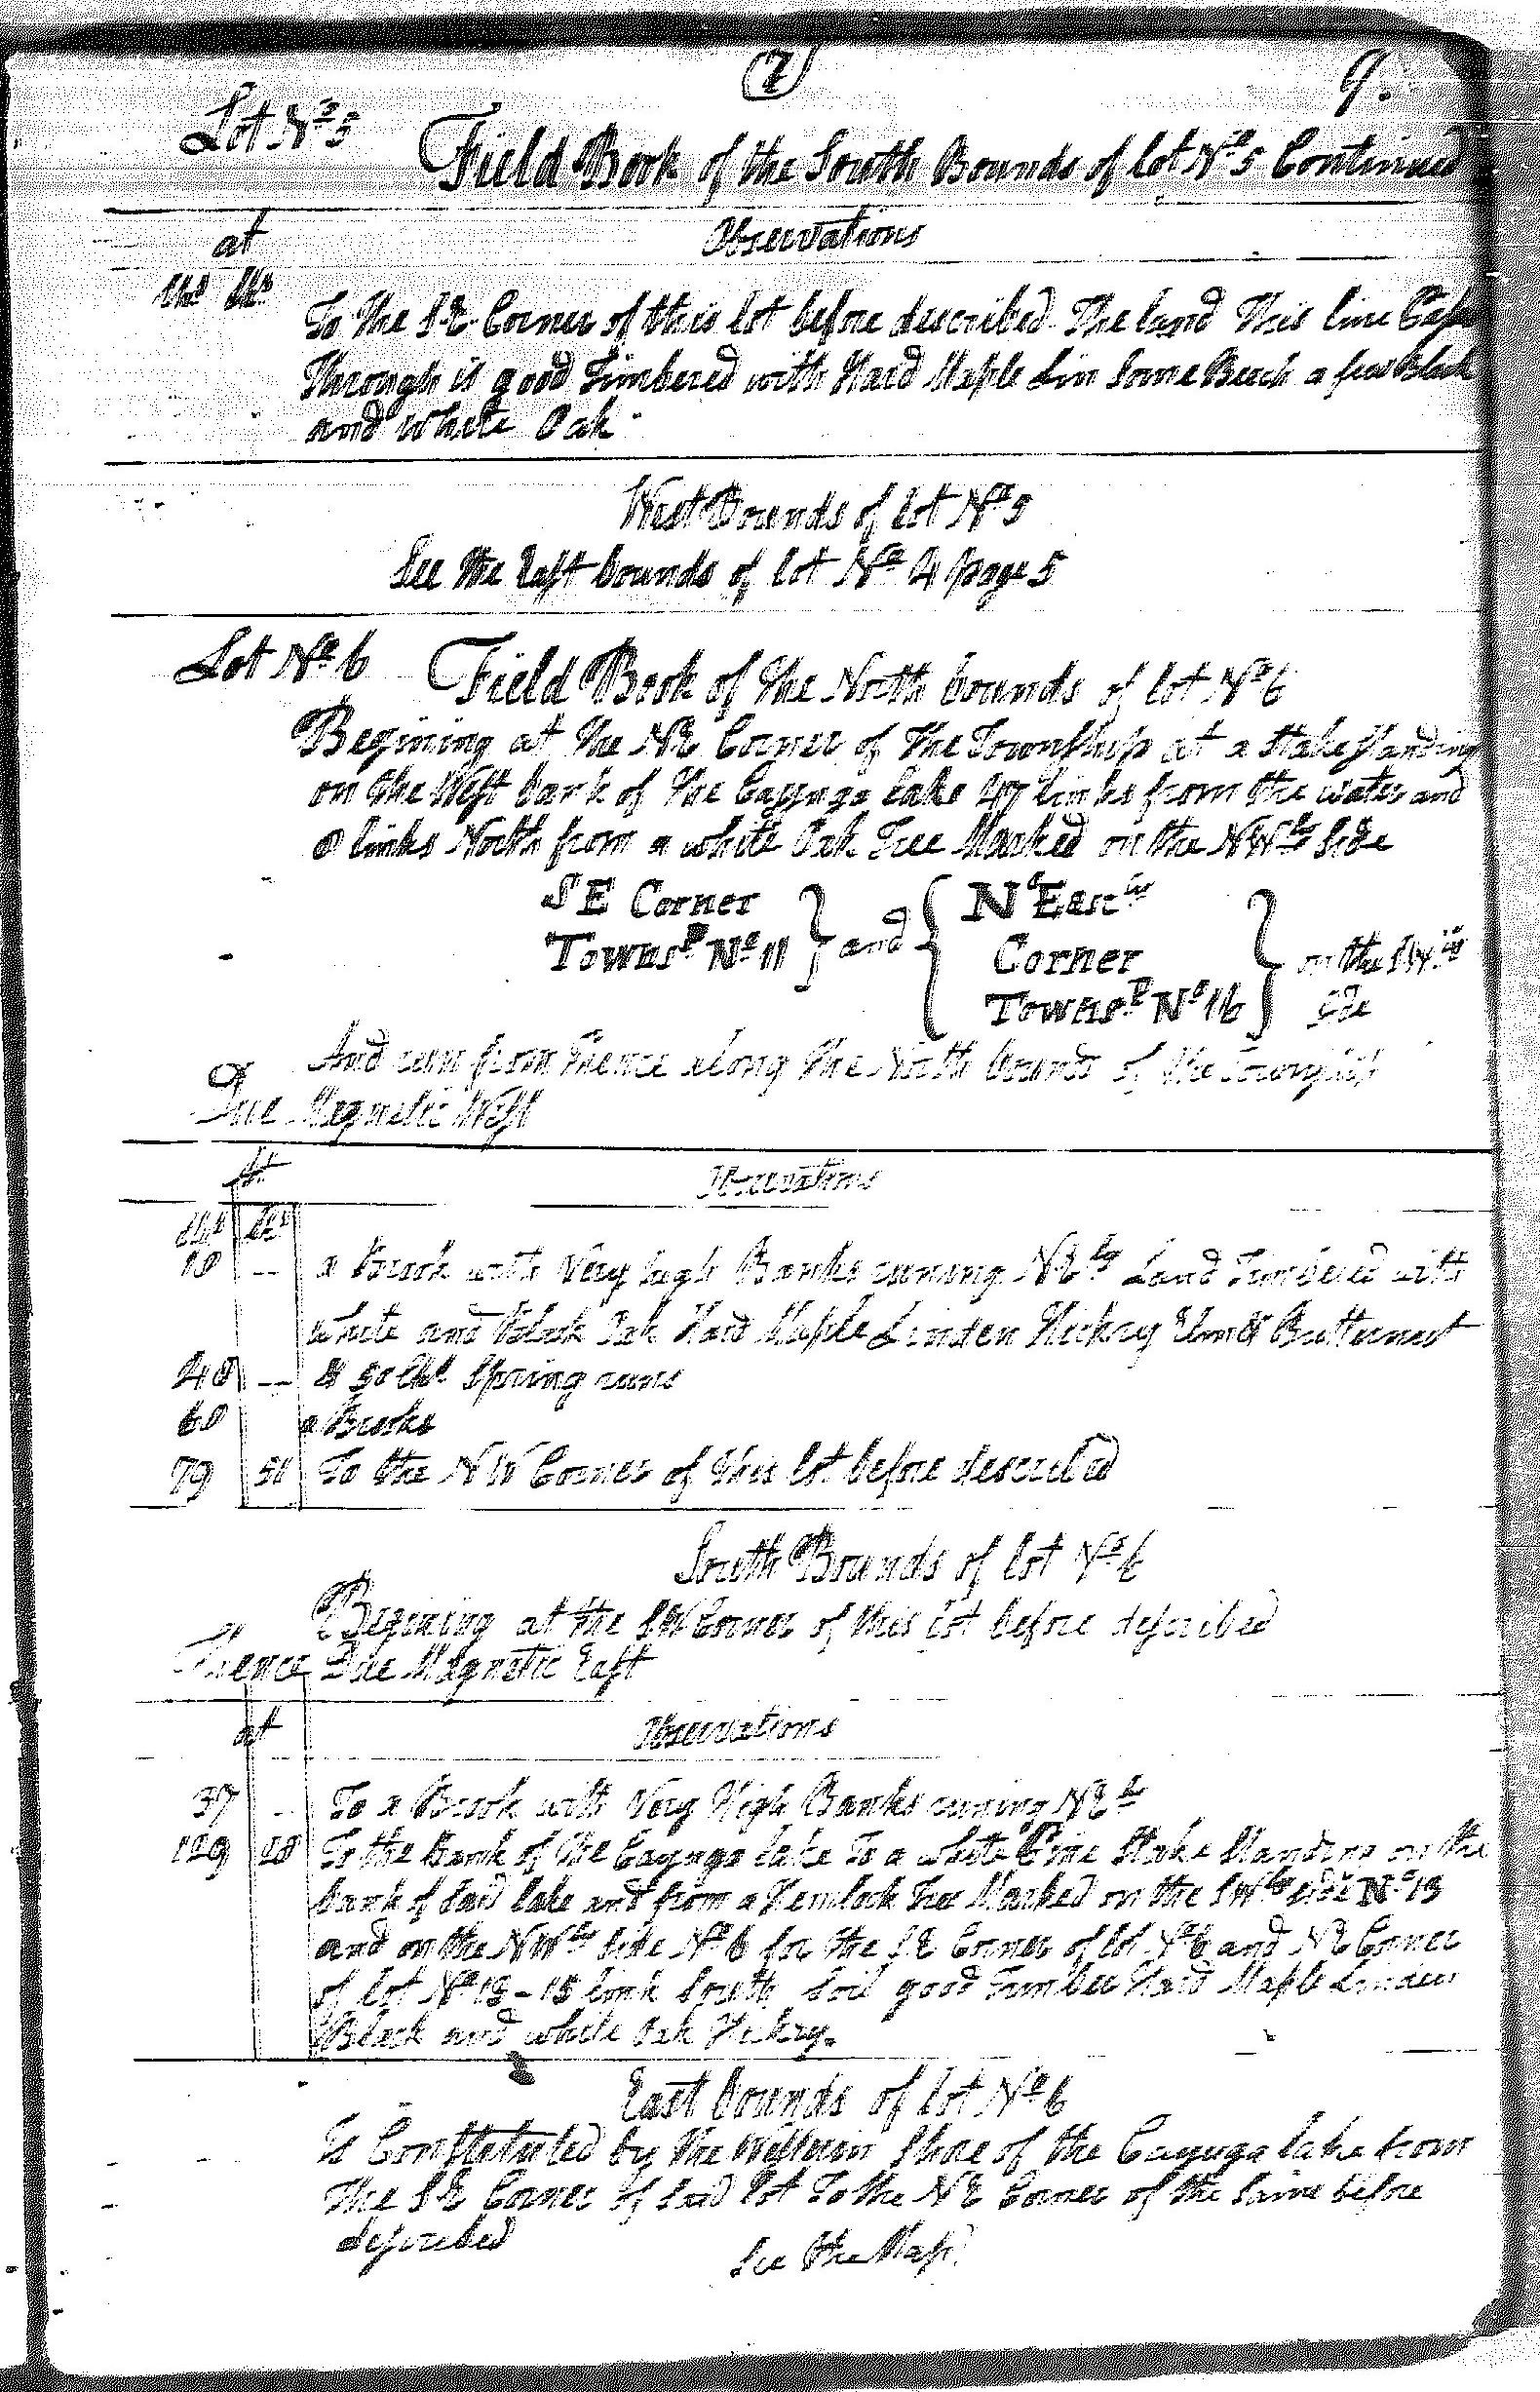 7 9.
Lot Nº 5 Field Book of the South Bounds of lot Nº 5 Continued
at Observations
Chs Lks
To the S.E. Corner of this lot before described The land This line
Through is good Timbered with Hard Maple Lin Some Beech a few Black
and white Oak
West Bounds of lot Nº 5
See the East bounds of lot Nº 4 page 5
Lot Nº 6 Field Book of the North bounds of lot Nº 6
Begining at the NE Corner of the Township at a Stake Standing
on the West bank of the Cayuga lake 47 links from the water and
8 links North from a white Oak Tree Marked on the NWly Side
SE Corner Townsp Nº 11 } and { N East Corner Townsp Nº 16 } on the SWly Side
And run from thence along the North bounds of the Township
Due Magnetic West
At Observations
Chs Lks
10 -- a Brook with Very high Banks runing NEly Land Timbered with
white and Black Oak Hard Maple Linden Hickry Elm & Butternut
40 -- & 50 Chs Spring runs
60 a Brooke
79 51 To the NW Corner of this lot before described
South Bounds of lot Nº 6
Begining at the SW Corner of this lot before described
Thence Due Magnetic East
at Observations
37 -- To a Brook with Very High Banks runing NEly
To the Bank of the Cayuga lake To a white Pine Stake Standing on the
bank of said lake and from a Hemlock Tree Marked on the SWly side Nº 13
and on the NWly side Nº 6 for the SE Corner of lot Nº 6 and NE Corner
of lot Nº 13 - 15 link South Soil good Timber Hard Maple Linden
Black and white Oak Hickry.
East bounds of lot Nº 6
Is Constituted by the Western Shore of the Cayuga lake from
The SE Corner of said lot To the NE Corner of the same before
described See the Map.